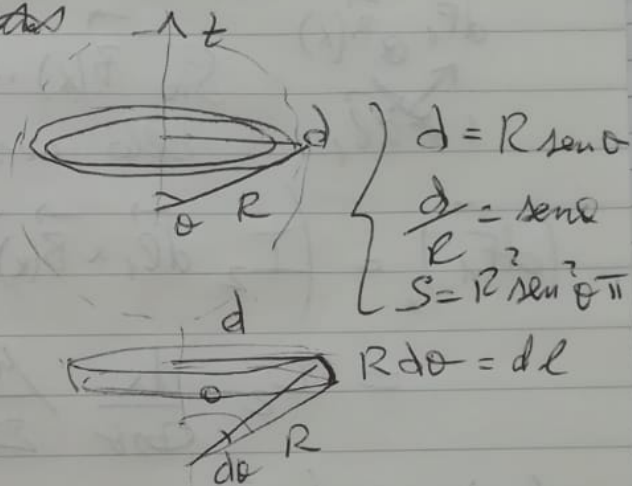 z
d
θ R
d = R senθ
d/R = senθ
S = R² sen²θ π
d
R dθ = dl
θ
dθ R